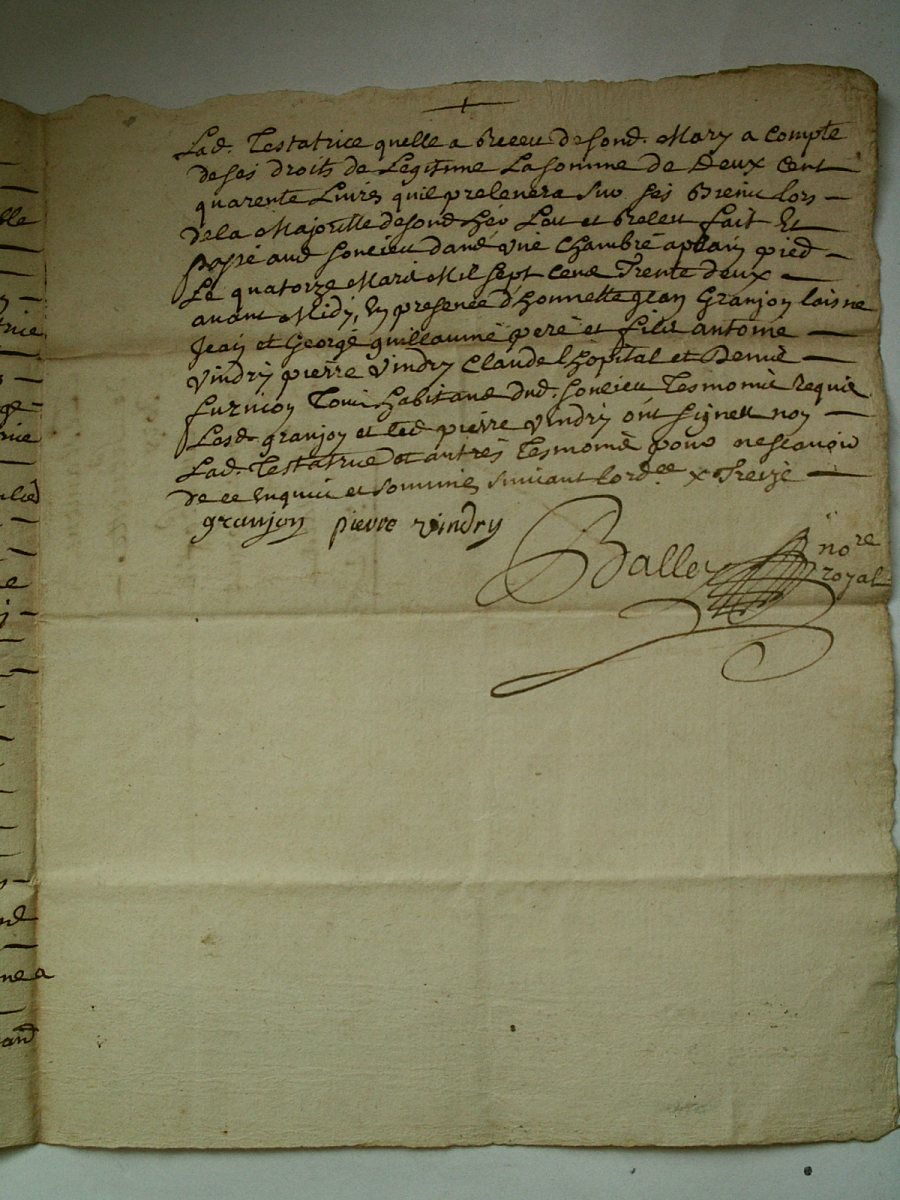 Lad. Testatrice quelle a Receu desond. Mary a Compte
deses droits de Legitime Lasomme de Deux Cent
quarente Livres quil prelevera sur ses Biens lors
dela Majorité desond. her Leu et Releu fait Et
passé aud. Soucieu dans Une Chambre aplain pied
Le quatorze Mars Mil sept Cens Trente deux
avant Midy, En presence d'honnette Jean Granjon laisne
Jean et George guillaume pere et fils antoine
Vindry pierre Vindry Claude lhopital et Denis
furnion Tous habitans dud. Soucieu Tesmoins Requis
Lesd. granjon et led. pierre Vindry ont signe non
Lad. Testatrice et autres Tesmoins pour nescavoir
de ce Enquis et sommes suivant lord.ce x Treize
granjon pierre vindry
Balley no.re
royal
elle
trice
ge
ulied
e
nea
and